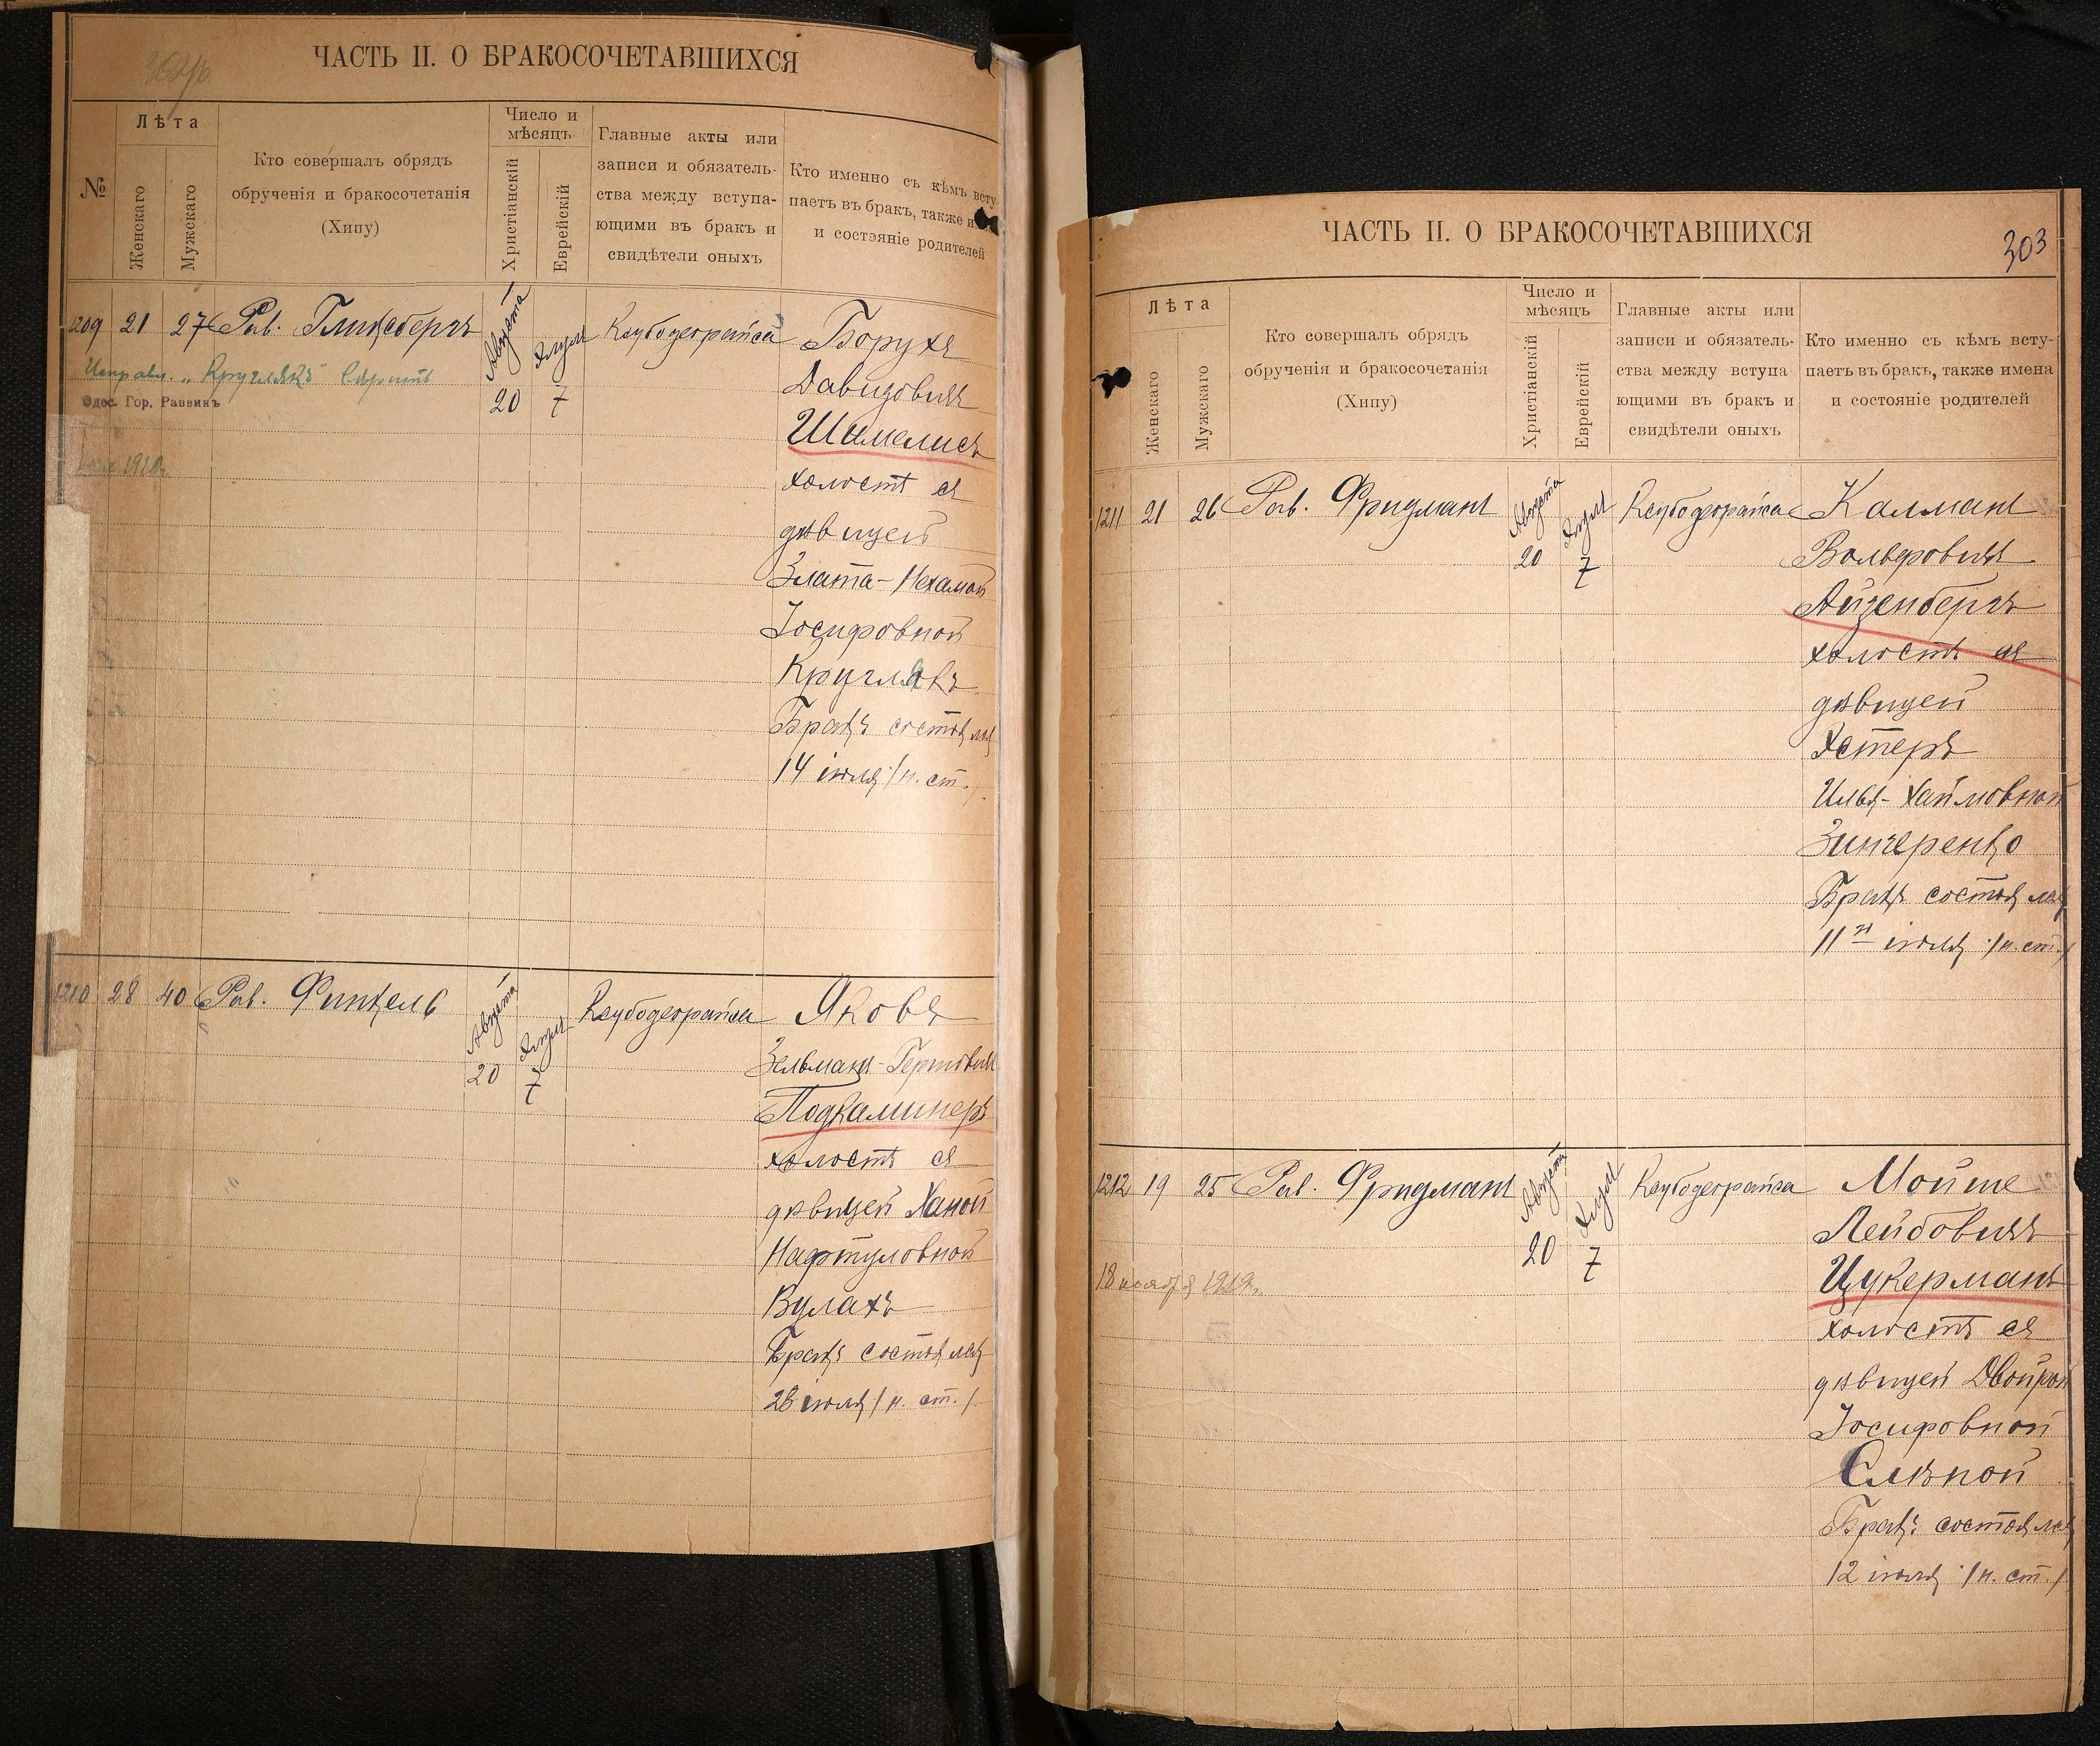 ЧАСТЬ II. О БРАКОСОЧЕТАВШИХСЯ
№
Лѣта
Женскаго
Мужскаго
Кто совершалъ обрядъ
обрученія и бракосочетанія
(Хипу)
Число и
мѣсяцъ
Христіанскій
Еврейскій
Главные акты или
записи и обязатель-
ства между вступа-
ющими въ бракъ и
свидѣтели оныхъ
Кто именно съ кѣмъ всту-
паетъ въ бракъ, также и
и состояніе родителей
1209 21 27 Рав. Гликсбергъ Августа 20 Элула 7 Ксубодеорайса Борухъ
Исправл. „Круглякъ" вѣрить
Одес. Гор. Раввинъ
1920
Давидовичъ
Шимелисъ
холостъ съ
дѣвицей
Злата-Нехамой
Іосифовной
Круглякъ
Бракъ состоялся
14 іюля /н. ст./
1210 28 40 Рав. Финкель Августа 20 Элула 7 Ксубодеорайса Яковъ
Зельманъ-Герш­овичъ
Подкаминеръ
холостъ съ
дѣвицей Ханой
Нафтуловной
Вулахъ
Бракъ состоялся
28 іюля /н. ст./
ЧАСТЬ II. О БРАКОСОЧЕТАВШИХСЯ
303
Лѣта
Женскаго
Мужскаго
Кто совершалъ обрядъ
обрученія и бракосочетанія
(Хипу)
Число и
мѣсяцъ
Христіанскій
Еврейскій
Главные акты или
записи и обязатель-
ства между вступа-
ющими въ бракъ и
свидѣтели оныхъ
Кто именно съ кѣмъ всту-
паетъ въ бракъ, также имена
и состояніе родителей
1211 21 26 Рав. Фридманъ Августа 20 Элула 7 Ксубодеорайса Калманъ
Вольфовичъ
Айзенбергъ
холостъ съ
дѣвицей
Эстеръ
Илья-Хаимовной
Зинченко
Бракъ состоялся
11го іюля /н. ст./
1212 19 25 Рав. Фридманъ Августа 20 Элула 7 Ксубодеорайса Мойше
Лейбовичъ
18 ноября 1919г.
Цукерманъ
холостъ съ
дѣвицей Двойрой
Іосифовной
Слѣпой
Бракъ состоялся
12 іюля /н. ст./